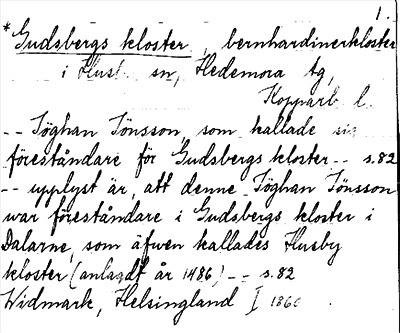 1.
* Gudsbergs kloster, bernhardinerkloster
i Hus. sn, Hedemora tg,
Kopparb l.
-- Jöghan Jönsson, som kallade sig
föreståndare för Gudsbergs kloster -- s.82
-- upplyst är, att denne Jöghan Jönsson
war föreståndare i Gudsbergs kloster i
Dalarne, som äfwen kallades Husby
kloster (anlagdt år 1486) -- s.82
Widmark, Helsingland I 1860